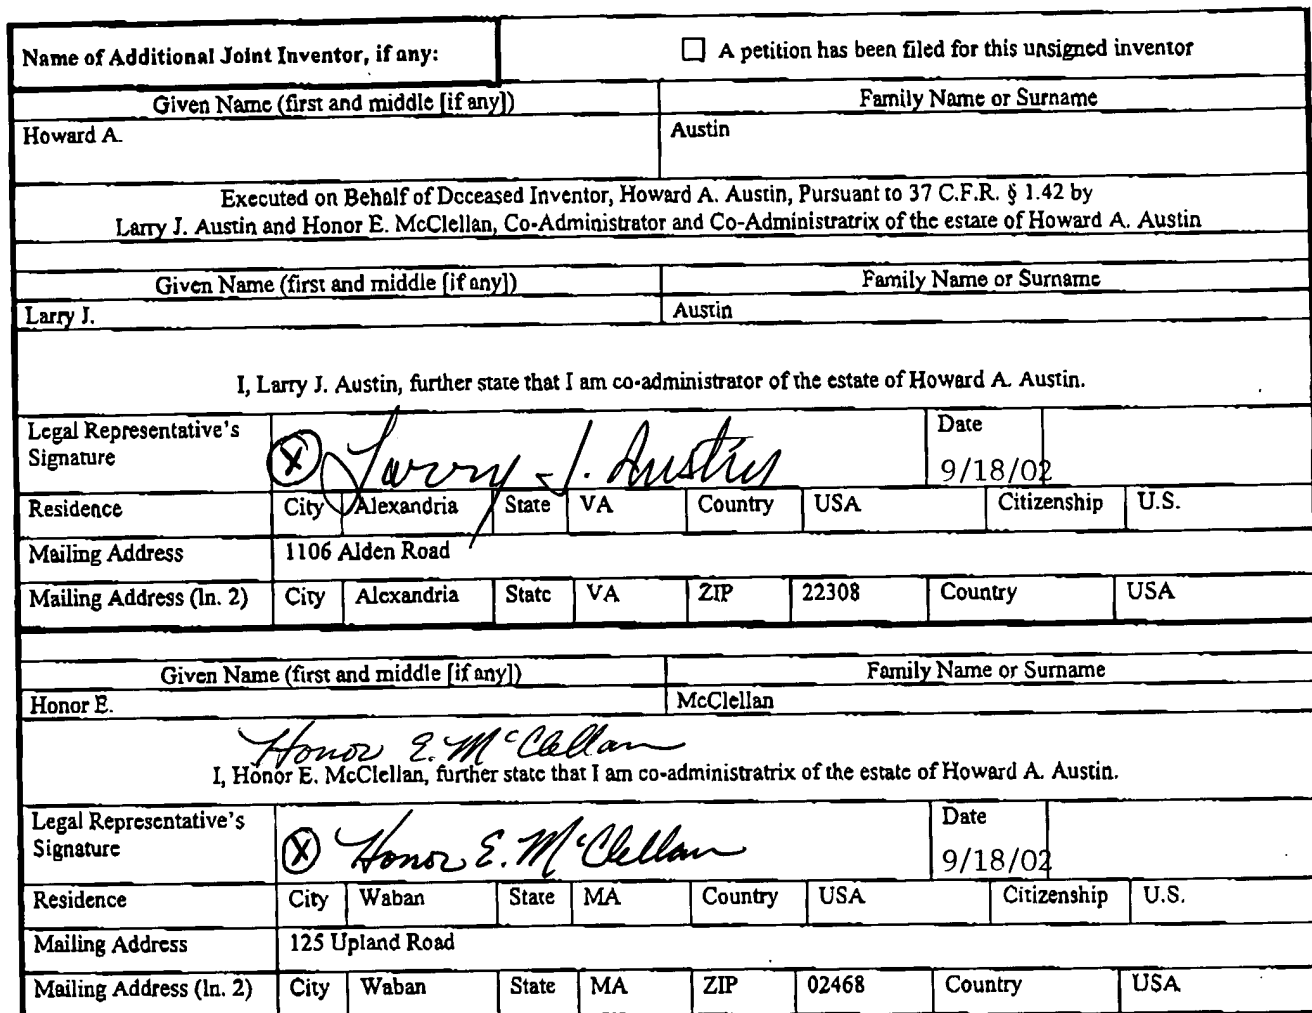 Name of Additional Joint Inventor, if any: ☐ A petition has been filed for this unsigned inventor
Given Name (first and middle [if any]) Family Name or Surname
Howard A. Austin
Executed on Behalf of Deceased Inventor, Howard A. Austin, Pursuant to 37 C.F.R. § 1.42 by
Larry J. Austin and Honor E. McClellan, Co-Administrator and Co-Administratrix of the estate of Howard A. Austin
Given Name (first and middle [if any]) Family Name or Surname
Larry J. Austin
I, Larry J. Austin, further state that I am co-administrator of the estate of Howard A. Austin.
Legal Representative's Signature X Larry J. Austin Date 9/18/02
Residence City Alexandria State VA Country USA Citizenship U.S.
Mailing Address 1106 Alden Road
Mailing Address (ln. 2) City Alexandria State VA ZIP 22308 Country USA
Given Name (first and middle [if any]) Family Name or Surname
Honor E. McClellan
Honor E. McClellan
I, Honor E. McClellan, further state that I am co-administratrix of the estate of Howard A. Austin.
Legal Representative's Signature X Honor E. McClellan Date 9/18/02
Residence City Waban State MA Country USA Citizenship U.S.
Mailing Address 125 Upland Road
Mailing Address (ln. 2) City Waban State MA ZIP 02468 Country USA